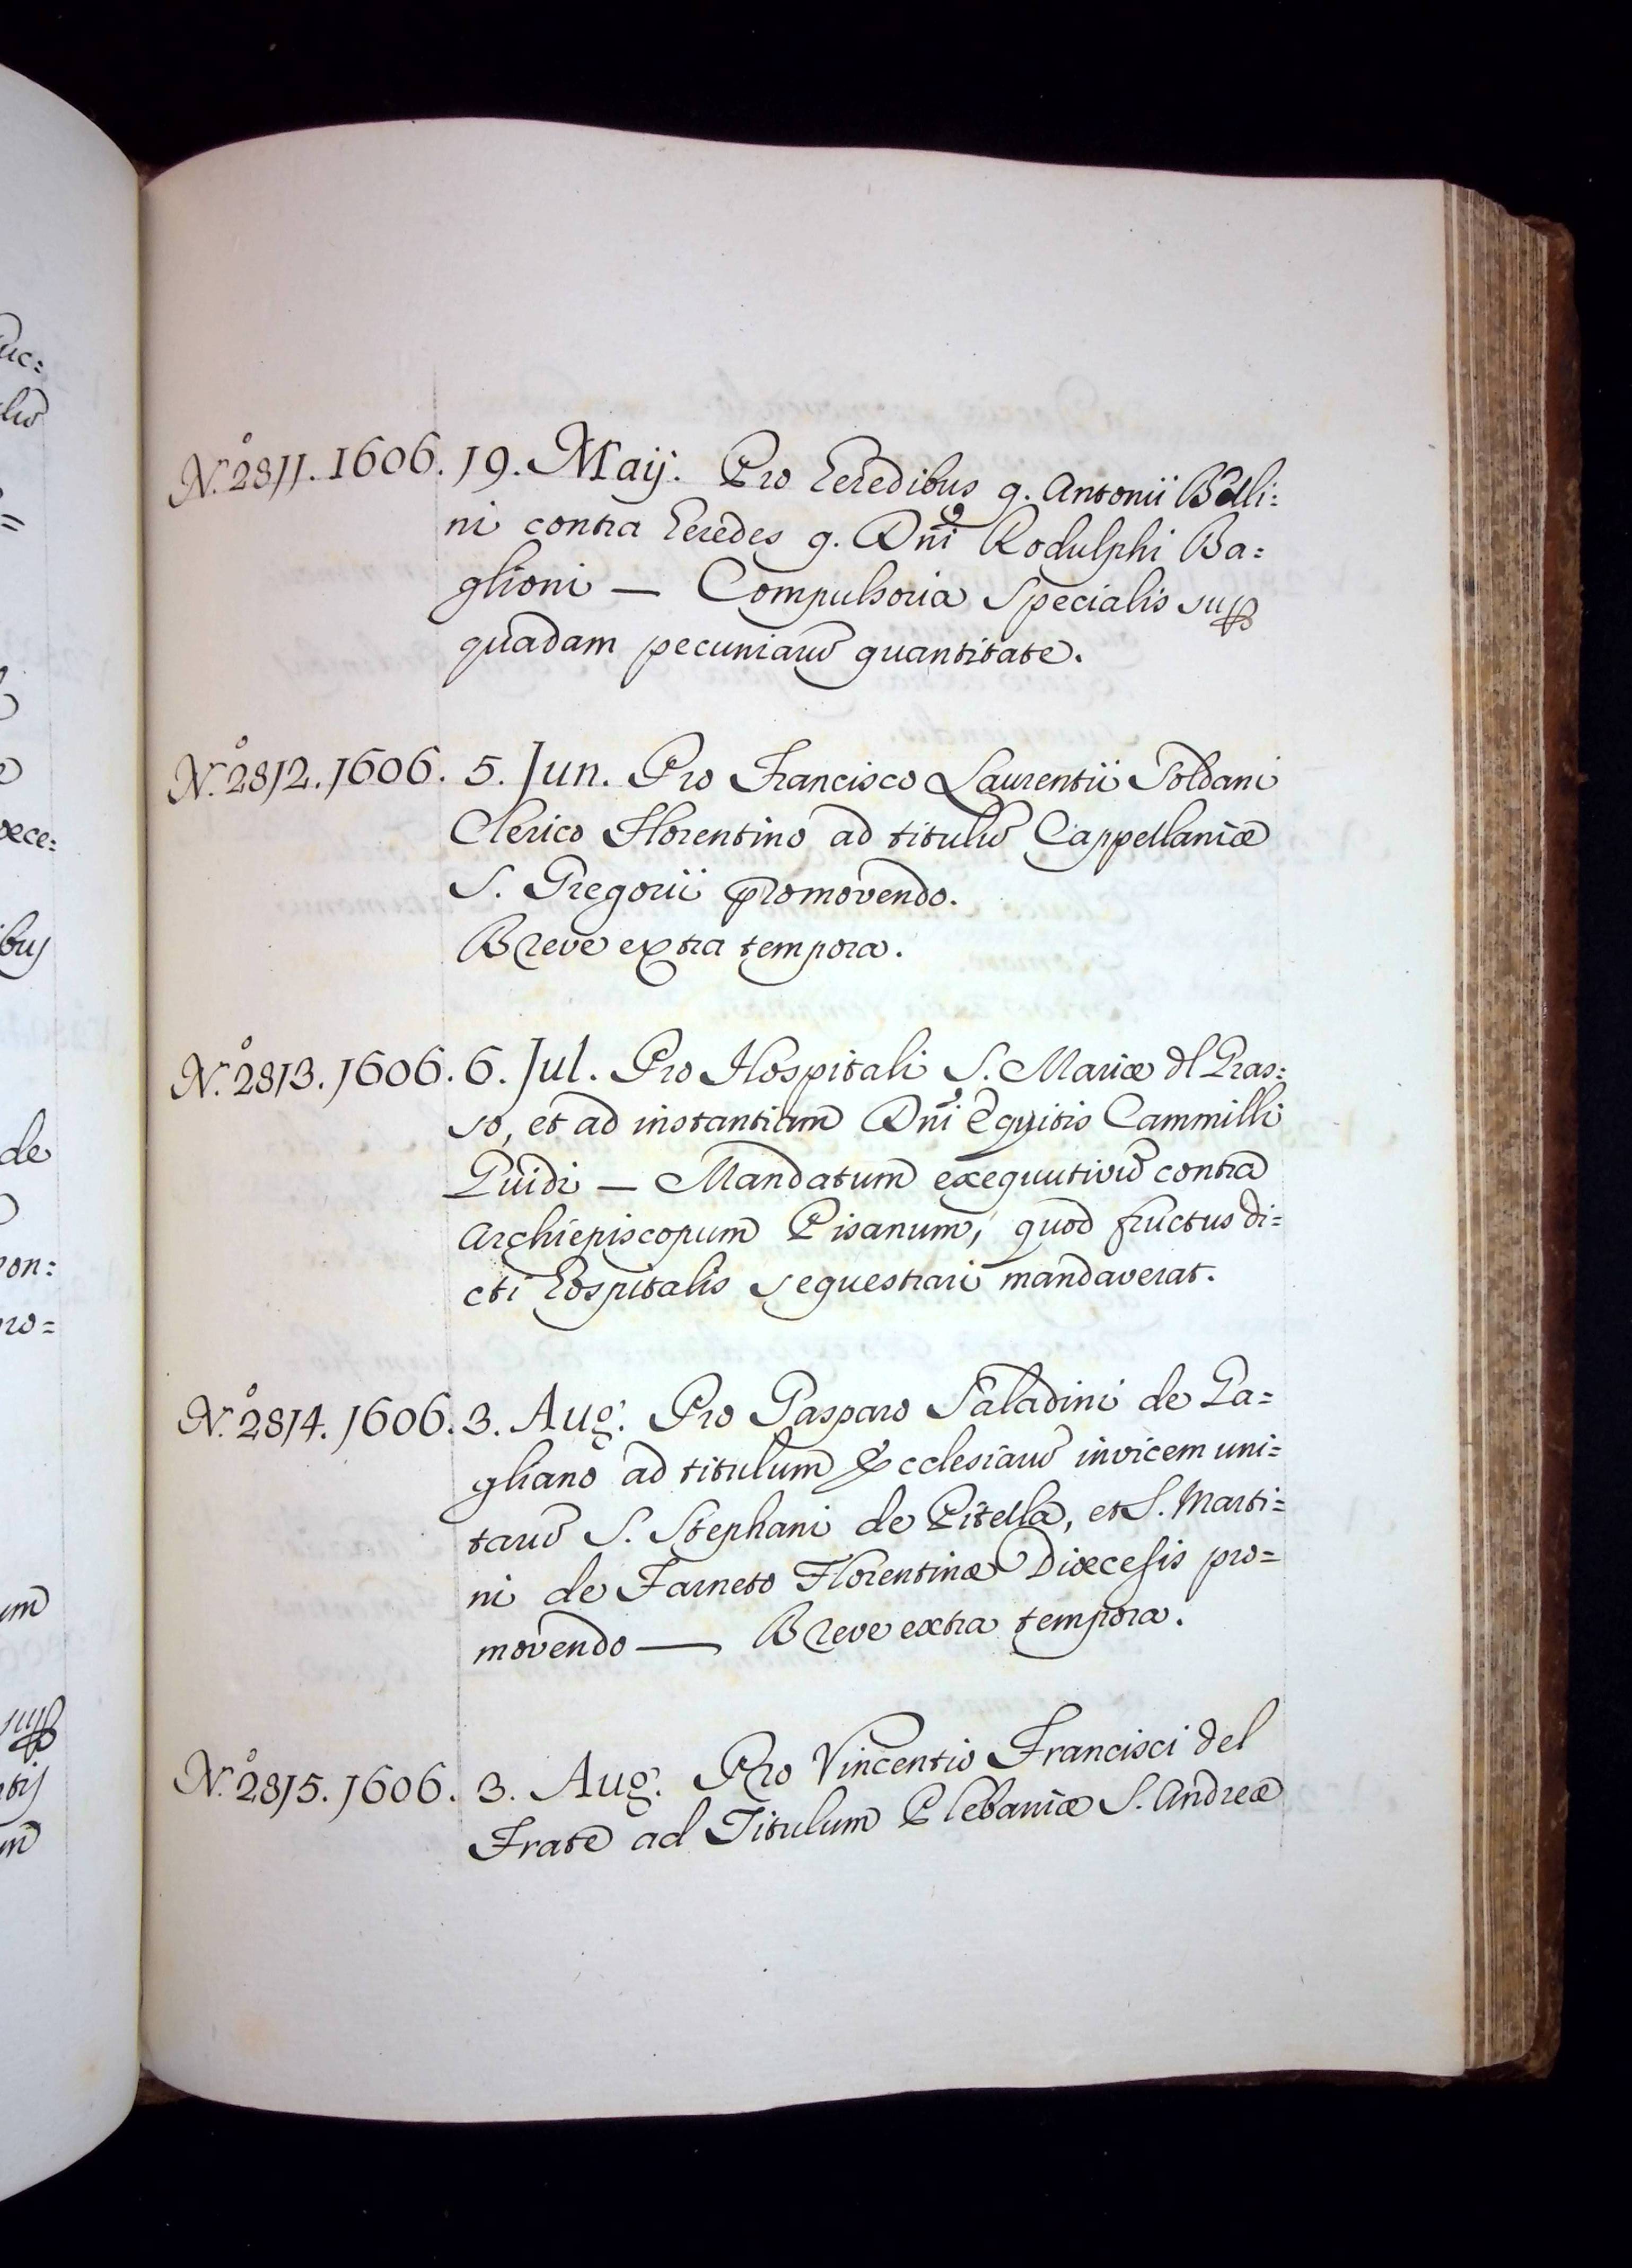 uc=
N.° 2811. 1606. 19. Maij. Pro heredibus q. Antonii Belli=
ni contra heredes q. Dñi Rodulphi Ba=
glioni — Compulsoria Specialis sup
quadam pecuniarũ quantitate.
N.° 2812. 1606. 5. Jun. Pro Francisco Laurentii Soldani
Clerico Florentino ad titulũ Cappellaniæ
S. Gregorii promovendo.
Breve extra tempora.
N.° 2813. 1606. 6. Jul. Pro Hospitali S. Mariæ dl Gras=
so, et ad instantiam Dñi Equitis Cammilli
Guidi — Mandatum exequutivũ contra
Archiepiscopum Pisanum, quod fructus di=
cti hospitalis sequestrari mandaverat.
N.° 2814. 1606. 3. Aug. Pro Gasparo Saladini de Ga=
gliano ad titulum Ecclesiarũ invicem uni=
tarũ S. Stephani de Pitella, et S. Marti=
ni de Farneto Florentinæ Diœcesis pro=
movendo — Breve extra tempora.
N.° 2815. 1606. 3. Aug. Pro Vincentio Francisci del
Frate ad Titulum Plebaniæ S. Andreæ